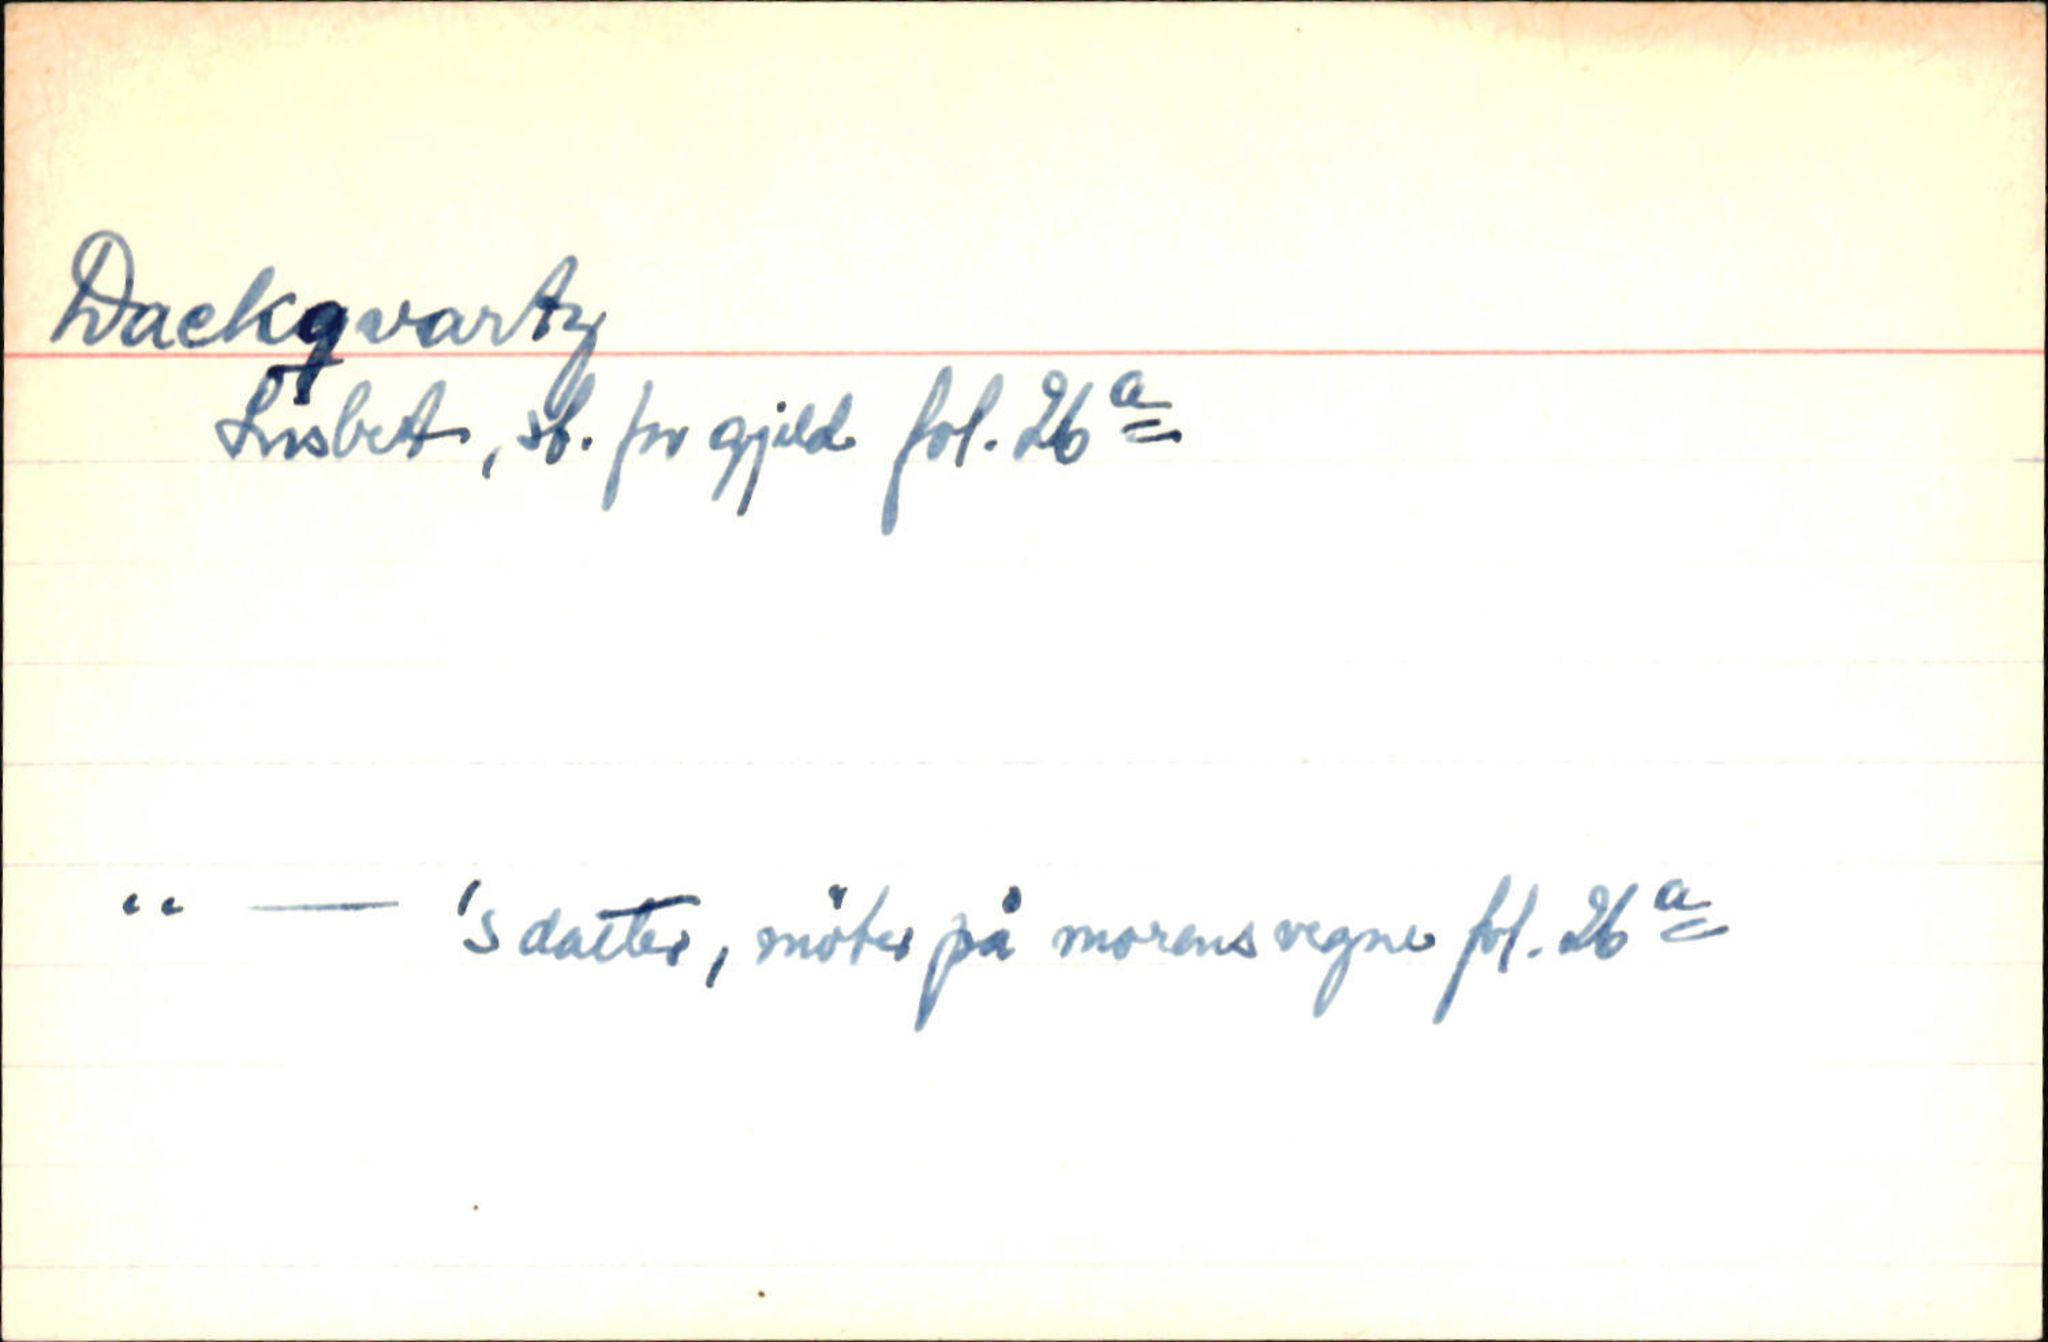 Dackqvartz
Lisbet, st. for gjeld fol. 26 a
" — 's datter, möter på morens vegne fol. 26 a